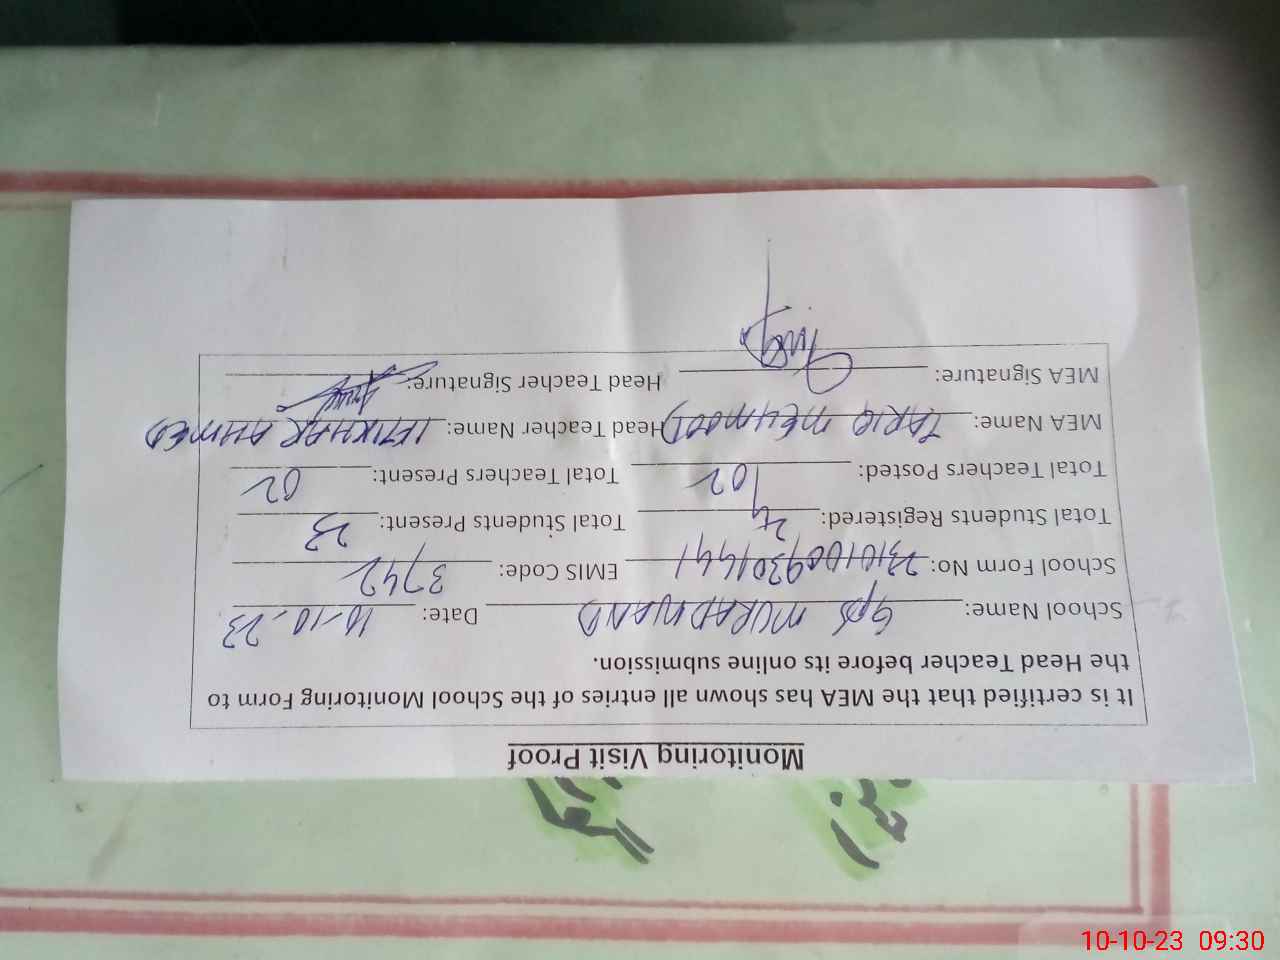 Monitoring Visit Proof
It is certified that the MEA has shown all entries of the School Monitoring Form to
the Head Teacher before its online submission.
School Name: GPS MURADWAND Date: 10-10-23
School Form No: 23101009301441 EMIS Code: 3742
Total Students Registered: 24 Total Students Present: 23
Total Teachers Posted: 02 Total Teachers Present: 02
MEA Name: TARIQ MEHMOOD Head Teacher Name: IFTIKHAR AHMED
MEA Signature: Head Teacher Signature:
10-10-23 09:30